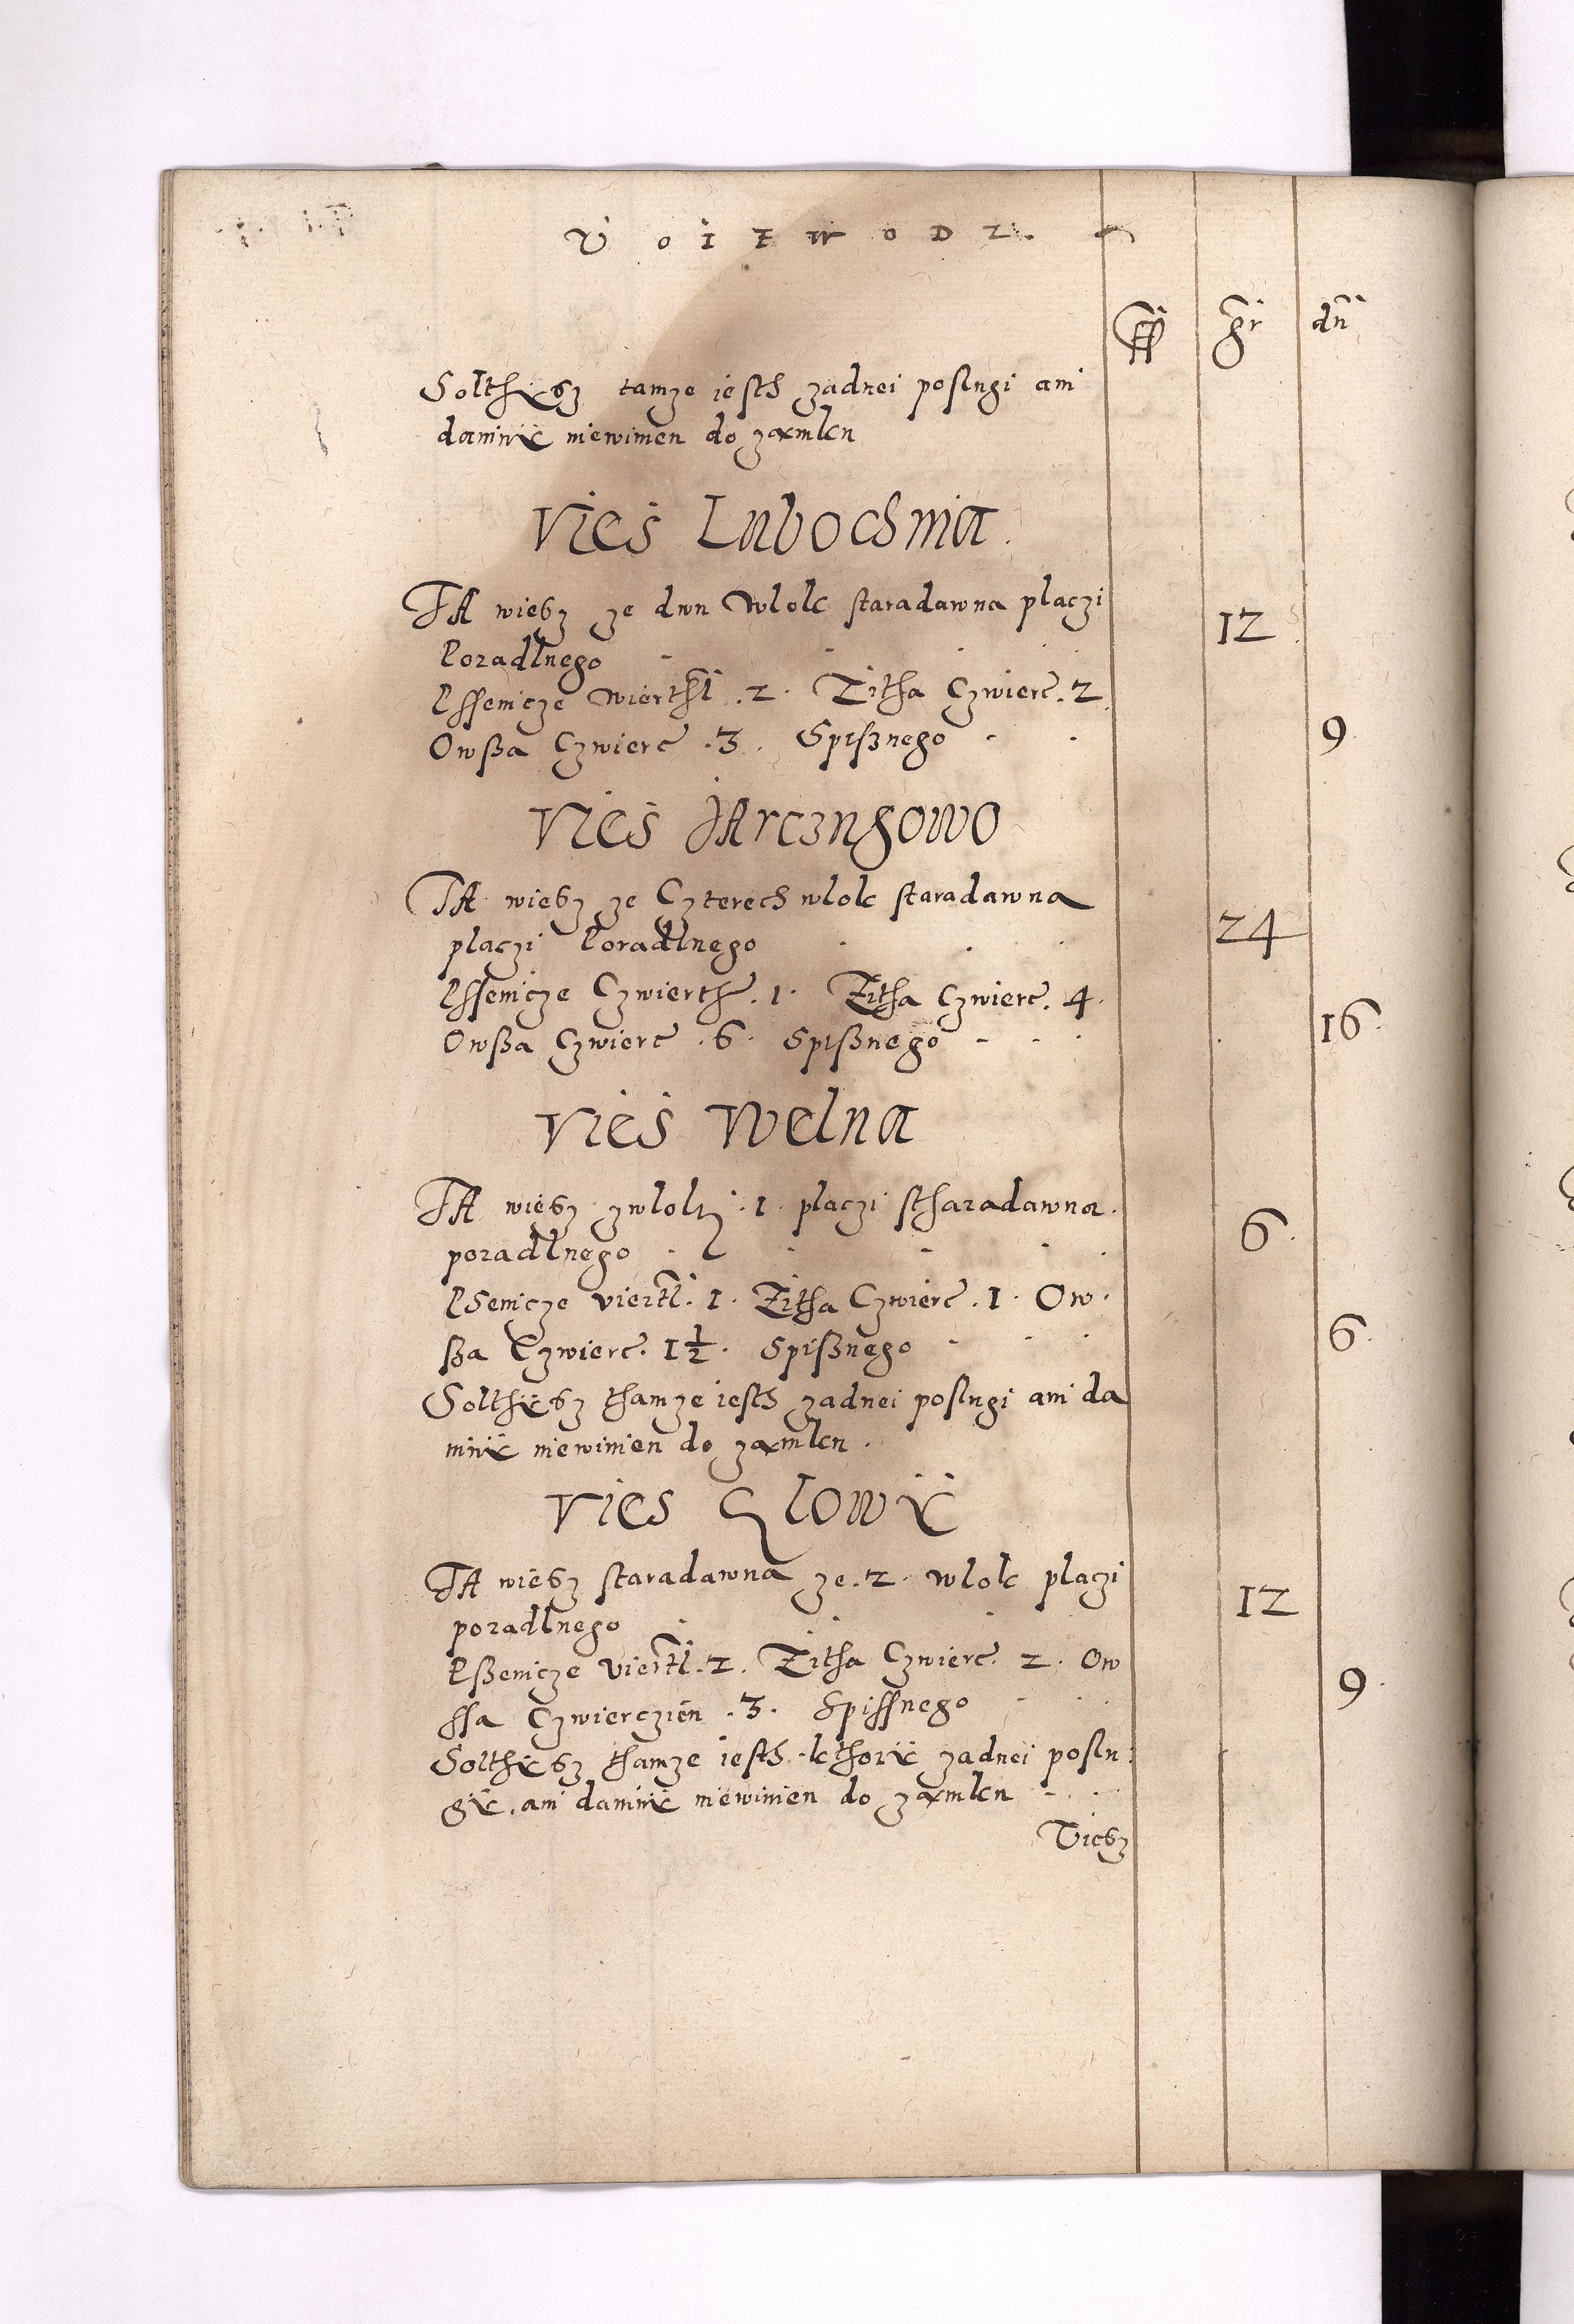 VOIEWODZ.
ff gr dn
Solthÿsz tamze iesth zadnei poslugi ani
daninÿ niewinien do zamku
Vies Lubochnia
TA wiesz ze dwu Wlok staradawna placzi
Poradlnego 12
Pssenicze Wierthl .2. Zitha Czwierc .2.
Owßa Czwierc .3. Spißnego 9
Vies JArczugowo
TA wiesz ze Czterech wlok staradawna
placzi Poradlnego 24
Pssenicze Czwierth .1. Zitha Czwierc .4.
Owßa Czwierc .6. Spißnego 16
Vies Welna
TA wiesz zwloki .1. placzi stharadawna
poradlnego 6
Psenicze viertl .1. Zitha Czwierc .1. Ow
ßa Czwierc. 1½. Spißnego 6
Solthÿsz thamze iesth zadnei poslugi ani da
ninÿ niewinien do zamku.
Vies Glowÿ
TA wiesz staradawna ze .2. wlok placzi
poradlnego 12
Pßenicze viertl .2. Zitha Czwierc. 2. Ow
ssa Czwierczien .3. Spissnego 9
Solthÿsz thamze iesth kthorÿ zadnei poslu:
gÿ, ani daninÿ niewinien do zamku
Viesz